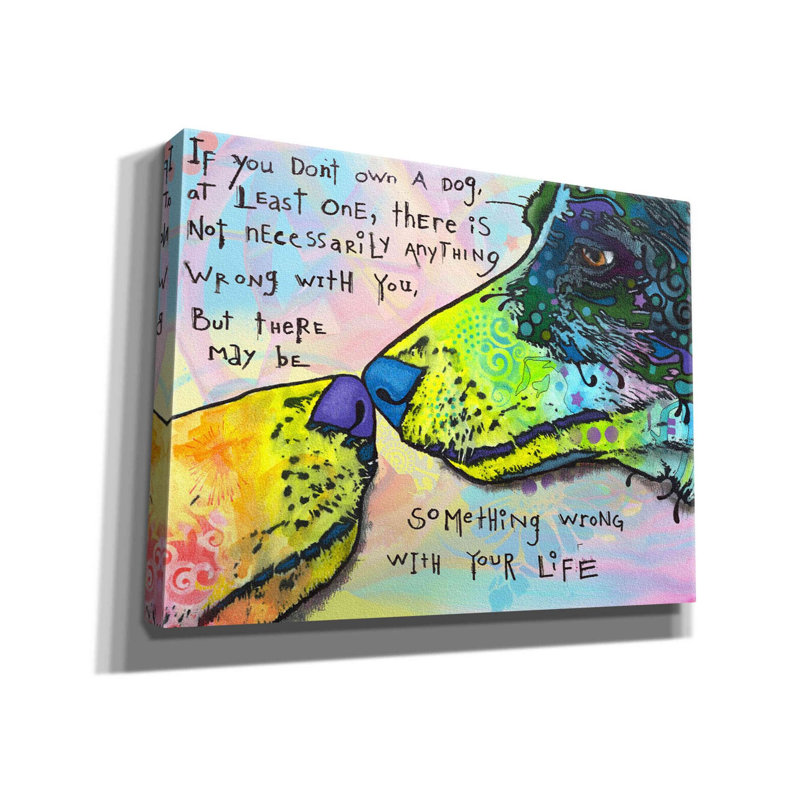 If you Don't own A Dog,
at Least onE, thERE is
Not nECEssARiLy AnyTHING
WRONG WITH You,
But thERE
may bE
somEtHiNg wRoNg
WITH YouR LiFE